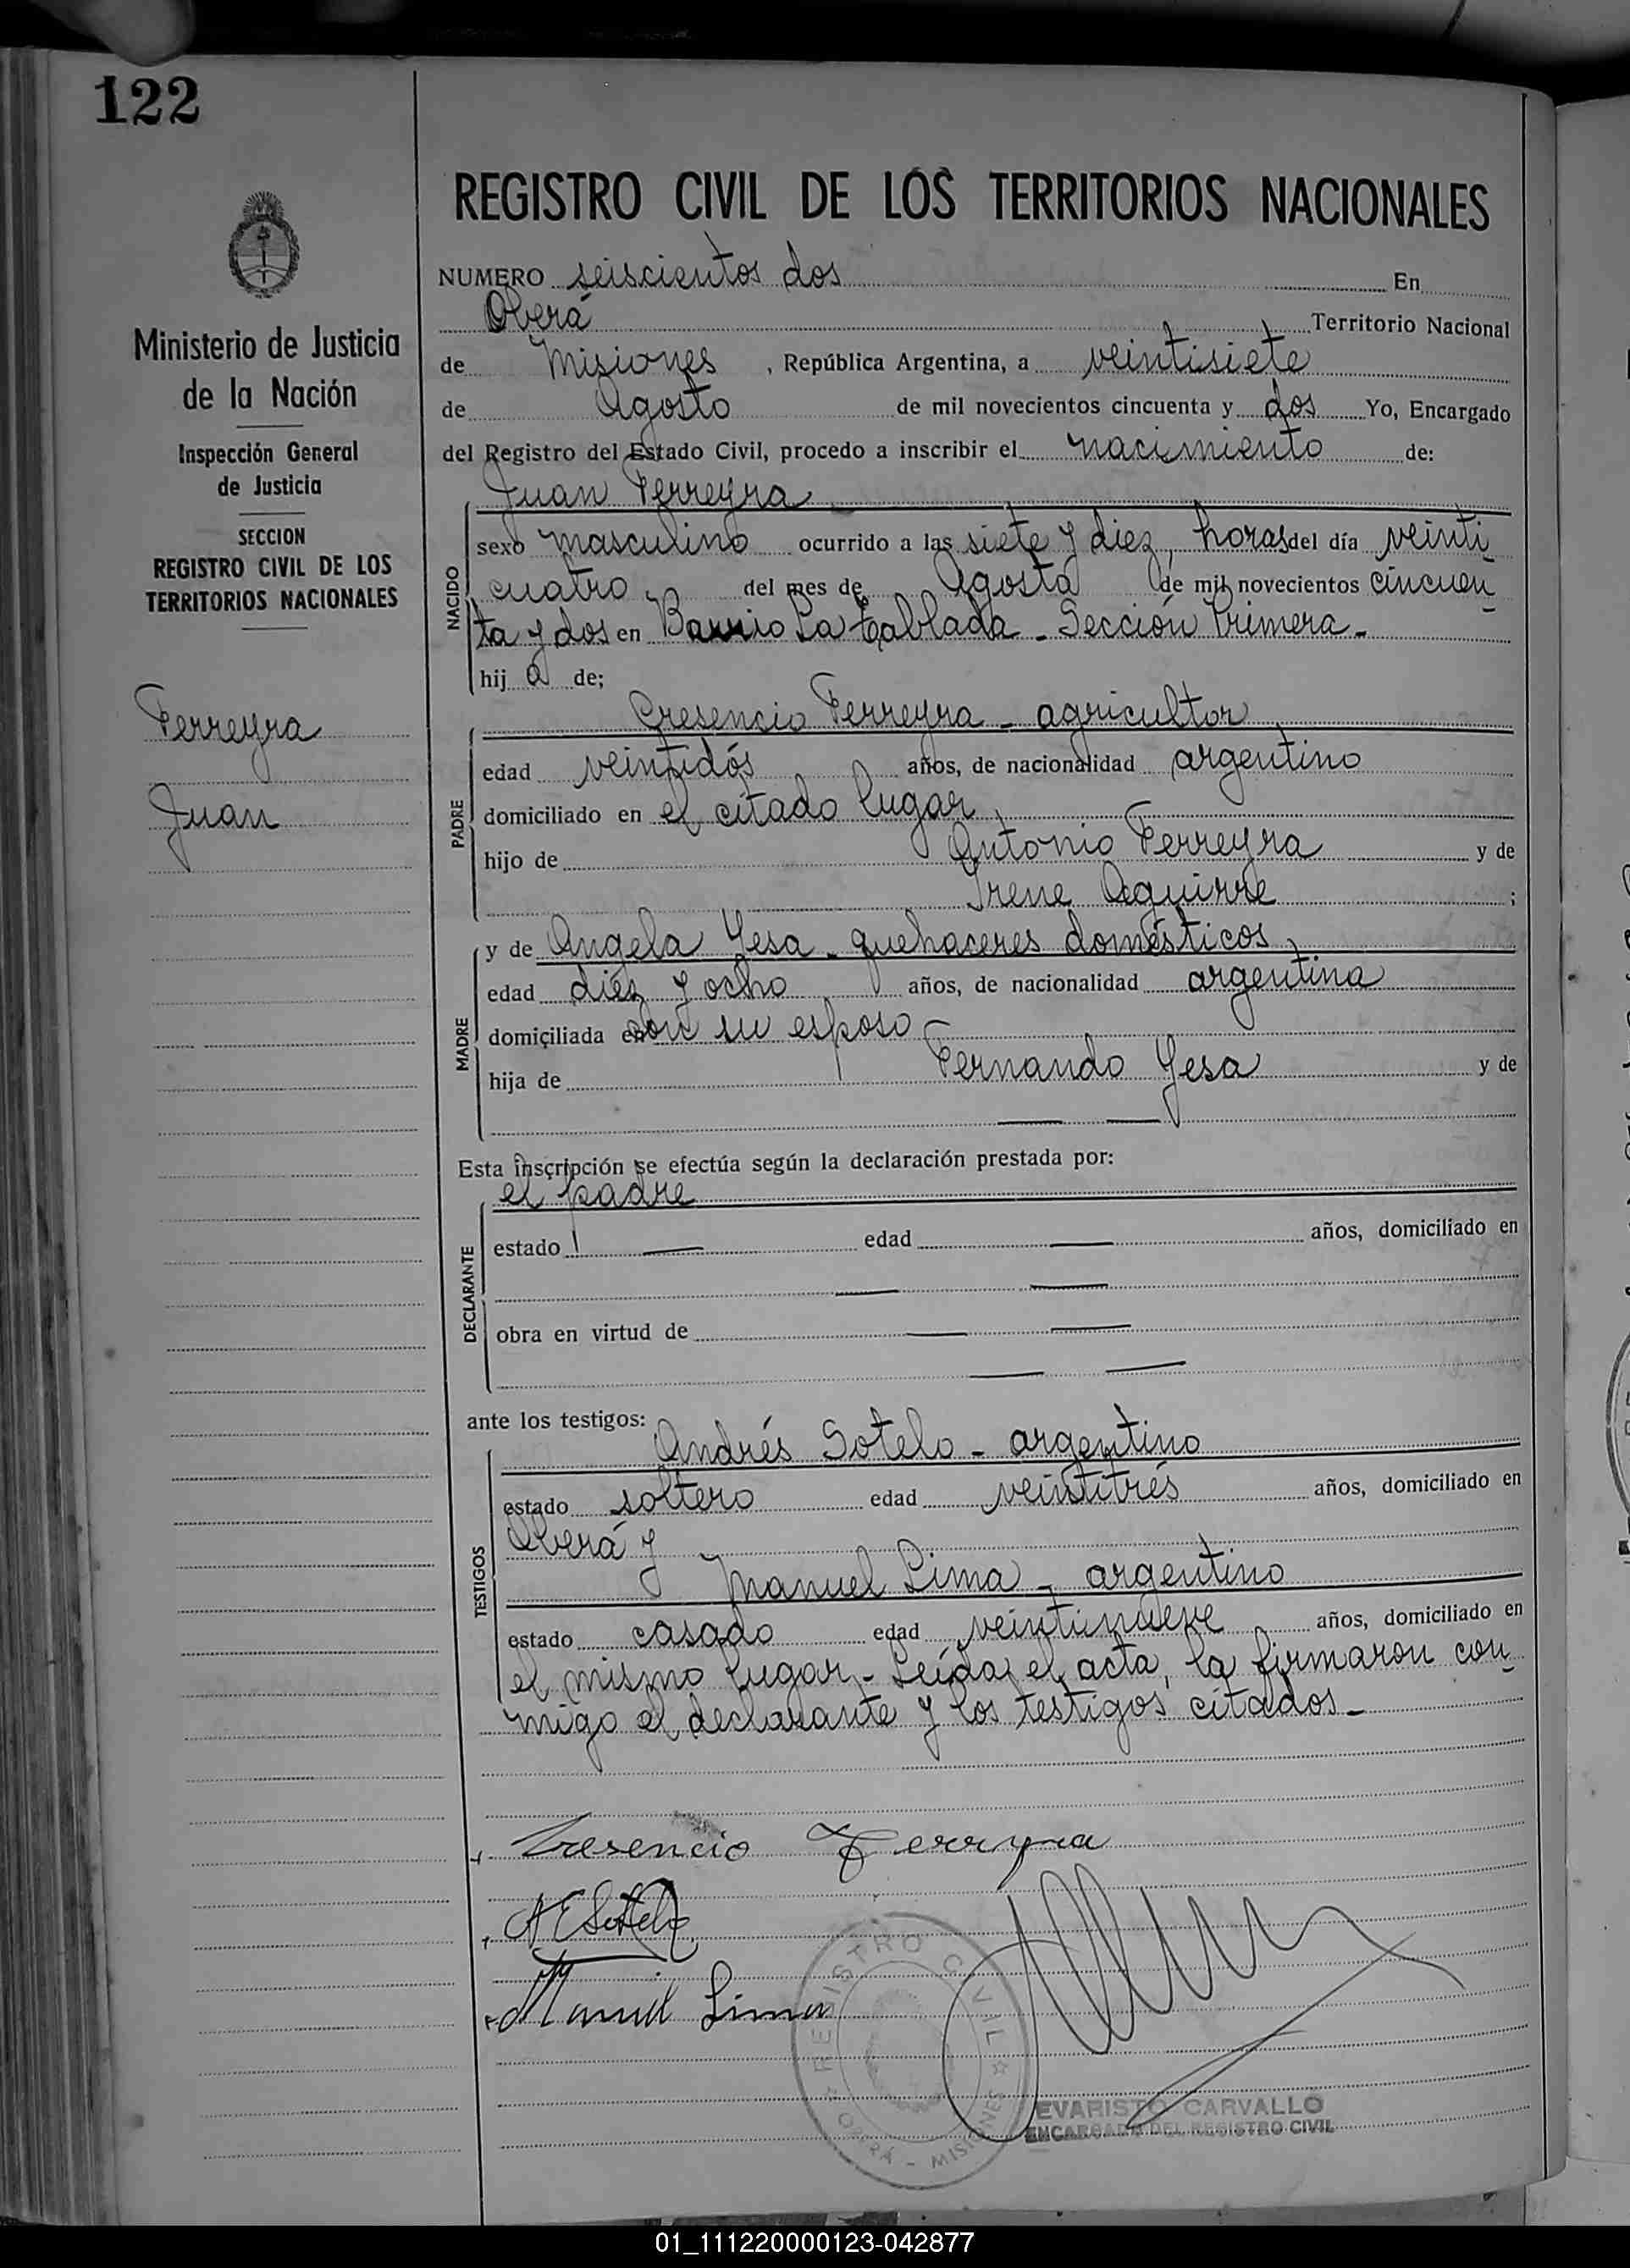 122
Ministerio de Justicia
de la Nación
Inspección General
de Justicia
SECCION
REGISTRO CIVIL DE LOS
TERRITORIOS NACIONALES
Ferreyra
Juan
REGISTRO CIVIL DE LOS TERRITORIOS NACIONALES
NUMERO seiscientos dos En
Oberá Territorio Nacional
de Misiones, República Argentina, a veintisiete
de Agosto de mil novecientos cincuenta y dos Yo, Encargado
del Registro del Estado Civil, procedo a inscribir el nacimiento de:
Juan Ferreyra
NACIDO
sexo masculino ocurrido a las siete y diez, horas del día veinti
cuatro, del mes de Agosto de mil novecientos cincuen-
ta y dos en Barrio La Tablada - Sección Primera -
hij o de;
PADRE
Cresencio Ferreyra - agricultor
edad veintidós años, de nacionalidad argentino
domiciliado en el citado lugar,
hijo de Antonio Ferreyra y de
Irene Aguirre ;
MADRE
y de Angela Yesa - quehaceres domésticos,
edad diez y ocho años, de nacionalidad argentina
domiciliada en con su esposo -
hija de Fernando Yesa y de
— —
Esta inscripción se efectúa según la declaración prestada por:
el padre
DECLARANTE
estado — edad — años, domiciliado en
— —
obra en virtud de — —
— —
ante los testigos:
TESTIGOS
Andrés Sotelo - argentino
estado soltero edad veintitrés años, domiciliado en
Oberá y
Manuel Lima - argentino
estado casado edad veintinueve años, domiciliado en
el mismo lugar - Leída el acta, la firmaron con-
migo el declarante y los testigos citados -
Cresencio Ferryra
A E Sotelo
Manuel Lima
REGISTRO CIVIL
OBERÁ - MISIONES
EVARISTO CARVALLO
ENCARGADO DEL REGISTRO CIVIL
01_111220000123-042877